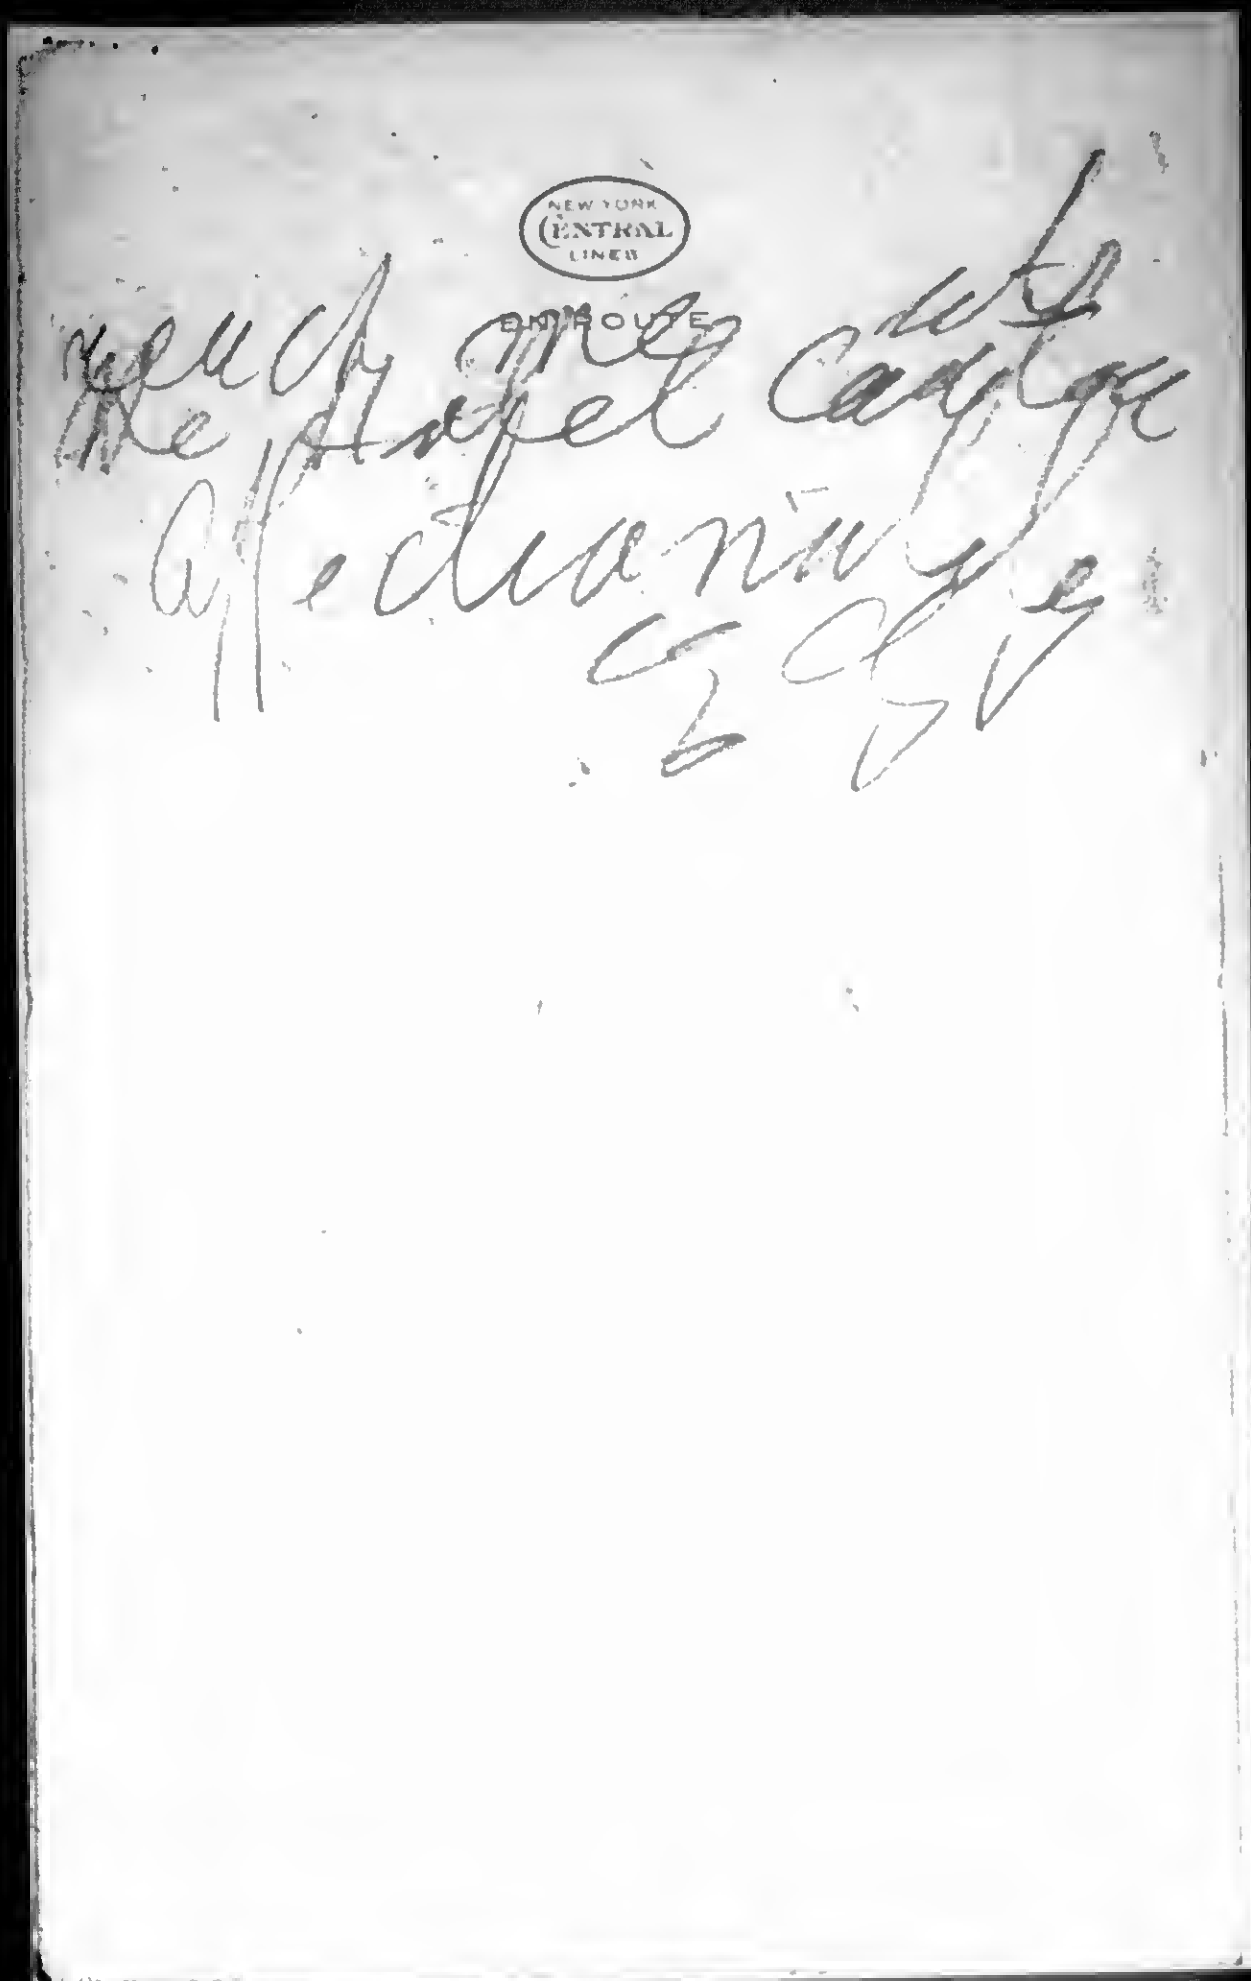 NEW YORK
CENTRAL
LINES
EN ROUTE
reach me at
the Hotel
Affectionately